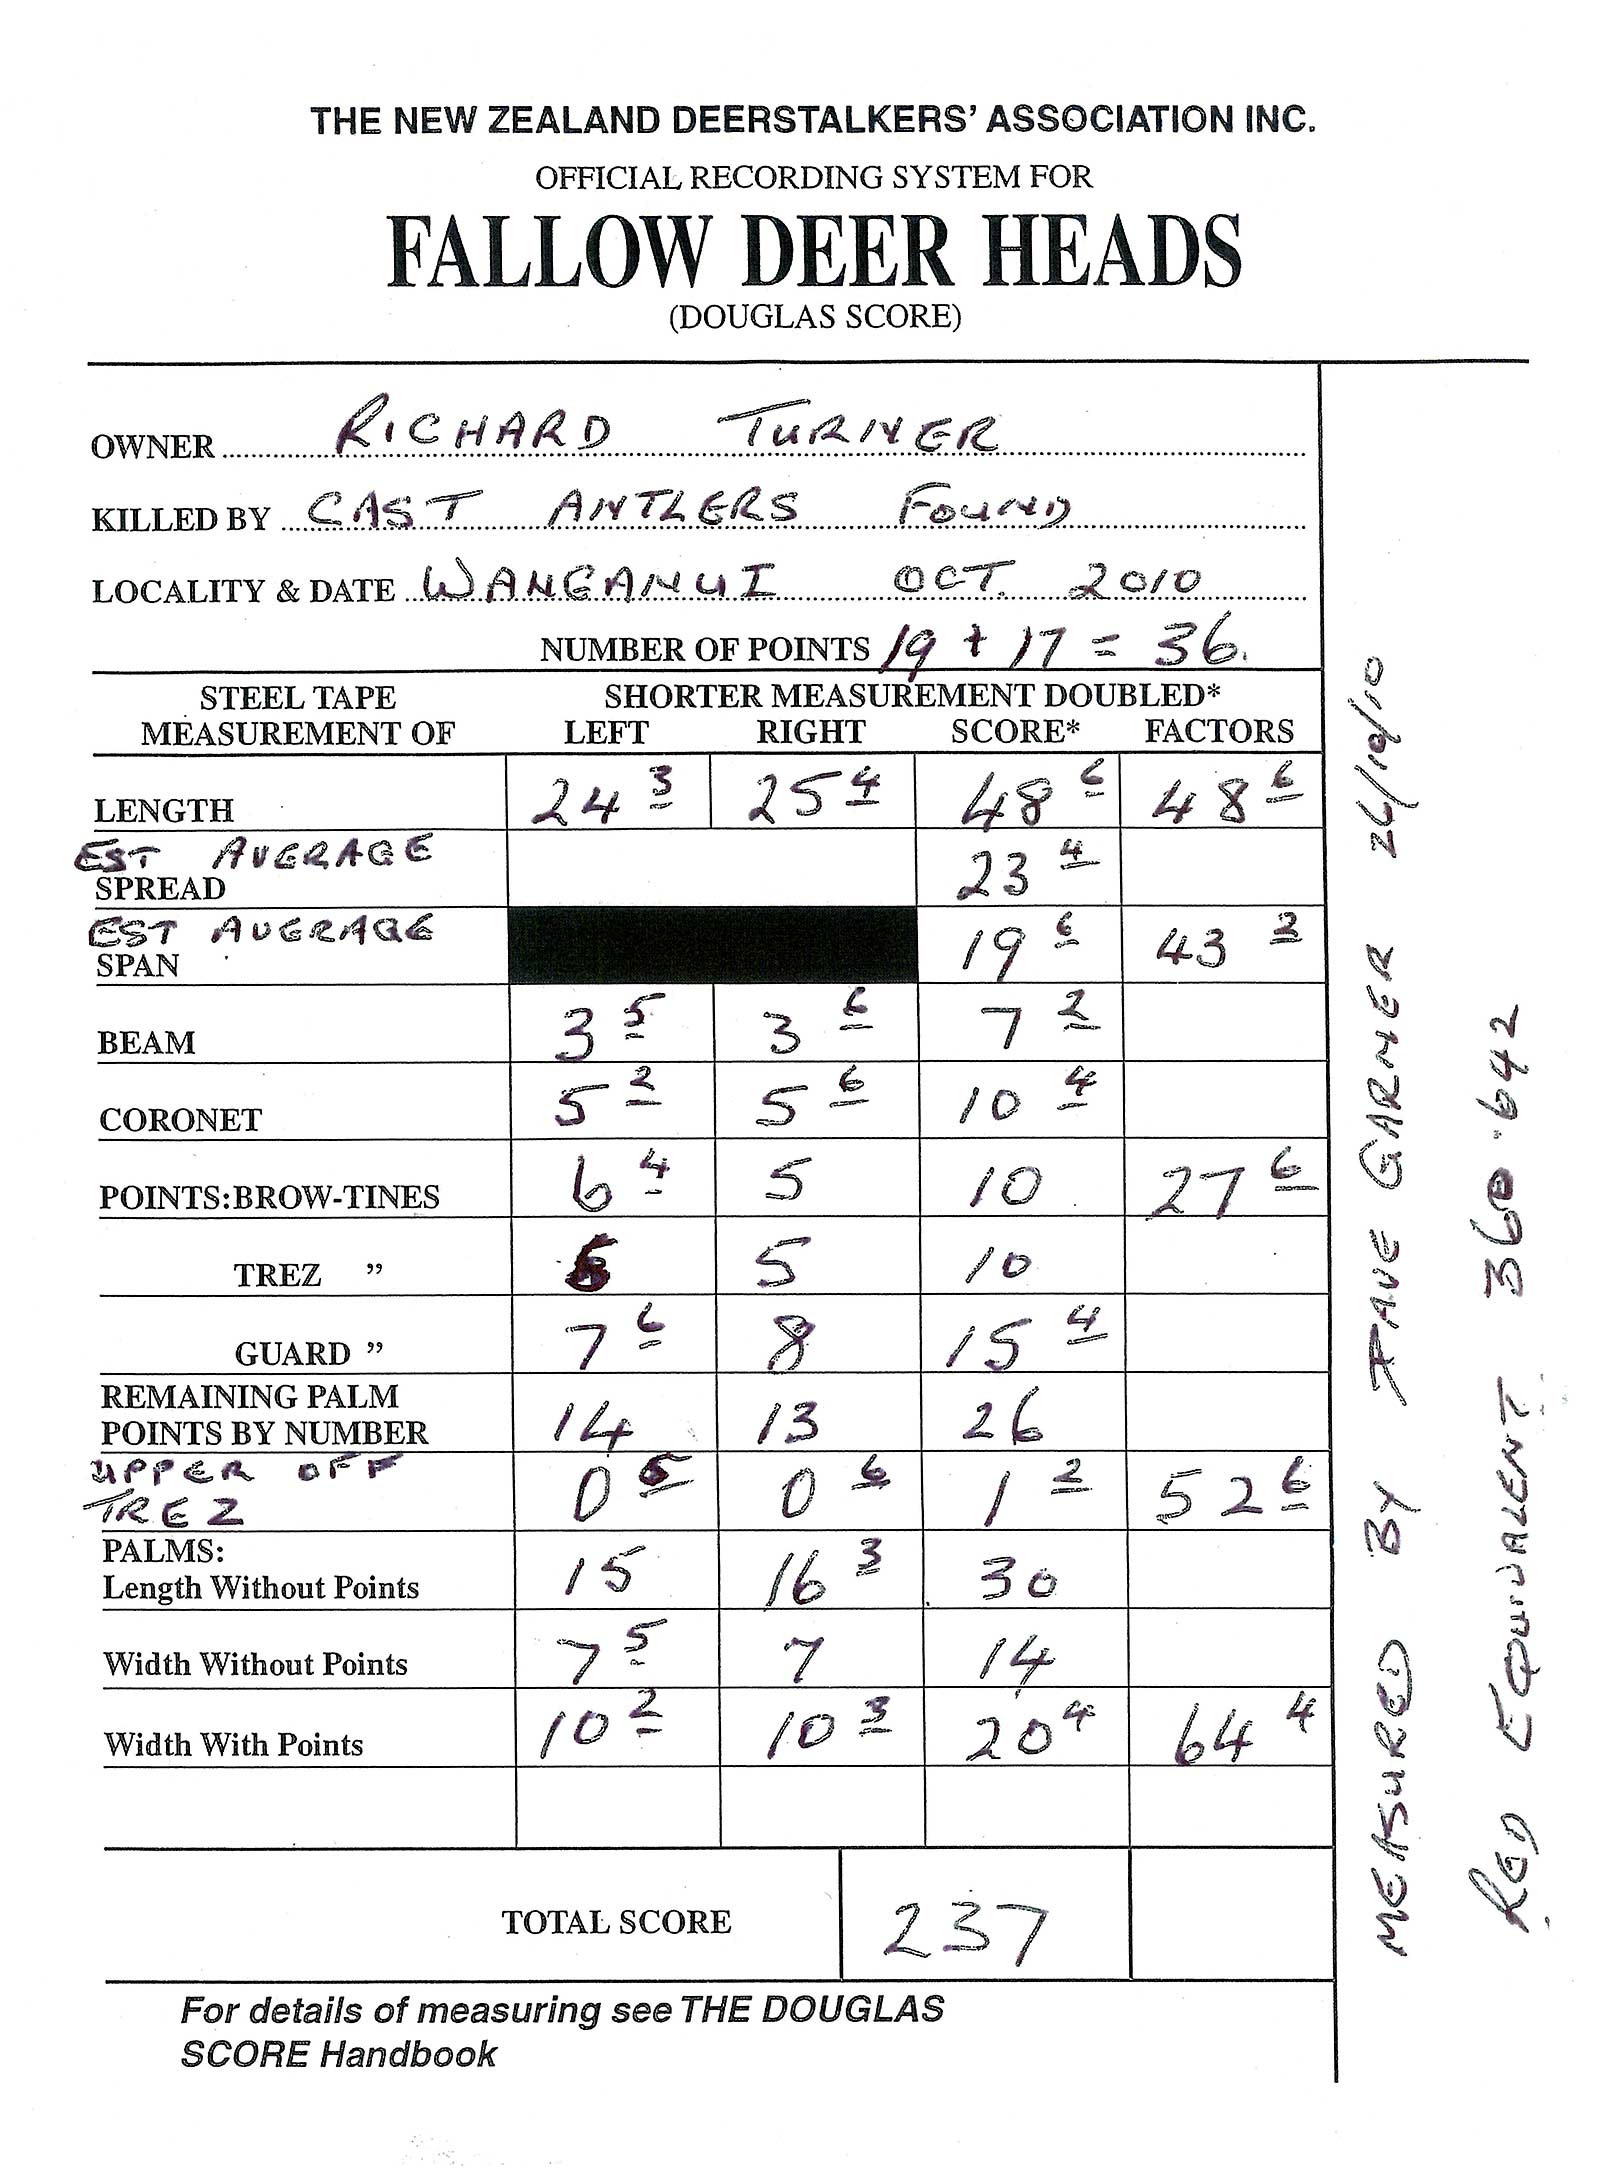 THE NEW ZEALAND DEERSTALKERS' ASSOCIATION INC.
OFFICIAL RECORDING SYSTEM FOR
FALLOW DEER HEADS
(DOUGLAS SCORE)
OWNER RICHARD TURNER
KILLED BY CAST ANTLERS FOUND
LOCALITY & DATE WANGANUI OCT. 2010
NUMBER OF POINTS 19 + 17 = 36.
STEEL TAPE SHORTER MEASUREMENT DOUBLED*
MEASUREMENT OF LEFT RIGHT SCORE* FACTORS
LENGTH 24 3 25 4 48 6 48 6
EST AVERAGE
SPREAD 23 4
EST AVERAGE
SPAN 19 6 43 2
BEAM 3 5 3 6 7 2
CORONET 5 2 5 6 10 4
POINTS: BROW-TINES 6 4 5 10 27 6
TREZ " 5 10
GUARD " 7 6 8 15 4
REMAINING PALM
POINTS BY NUMBER 14 13 26
UPPER OFF
TREZ 0 5 0 6 1 2 52 6
PALMS:
Length Without Points 15 16 3 30
Width Without Points 7 5 7 14
Width With Points 10 2 10 3 20 4 64 4
TOTAL SCORE 237
For details of measuring see THE DOUGLAS
SCORE Handbook
MEASURED BY DAVE GARMER /10/10
RED EQUIVALENT 360.642